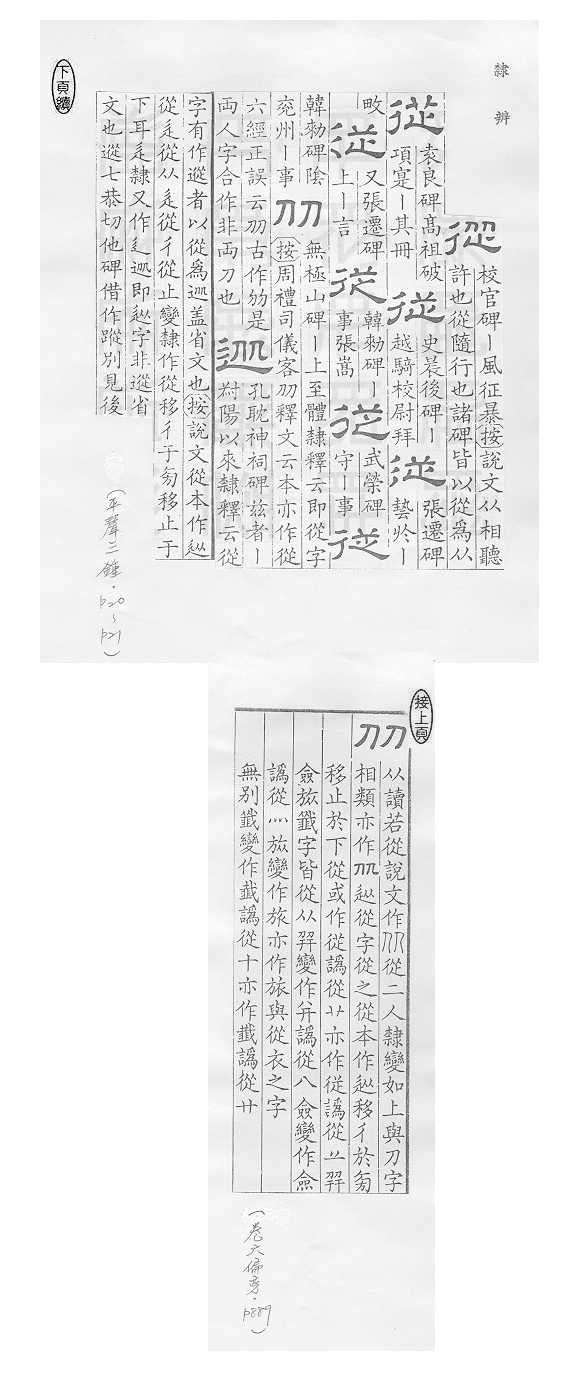 隸辨
從
校官碑丨風征暴按說文从相聽
許也從隨行也諸碑皆以從為从
從
袁良碑高祖破
項寔丨其冊
從
史晨後碑丨
越騎校尉拜
從
張遷碑
藝於丨
畋
從
又張遷碑
上丨言
從
韓勑碑丨
事張嵩
從
武榮碑
守丨事
從
韓勑碑陰
兖州丨事
刀刀
無極山碑丨上至體隸釋云即從字
按周禮司儀客刕釋文云本亦作從
六經正誤云刕古作劮是
両人字合作非両刀也
孔耽神祠碑茲者丨
尌陽以來隸釋云從
字有作遳者以從為迡盖省文也按說文從本作𨑢
從辵從从辵從彳從止變隸作從移彳于旁移止于
下耳辵隸又作辶迡即𨑢字非遳省
文也遳七恭切他碑借作蹤別見後
(平聲三鍾．p20～p21)
下頁續
接上頁
刀刀
从讀若從說文作从從二人隸變如上與刀字
相類亦作𠚥𨑢從字從之從本作𨑢移彳於旁
移止於下從或作従譌從丷亦作従譌從䒑羿
僉旅籤字皆從从羿變作并譌從八僉變作僉
譌從灬旅變作旅亦作旅與從衣之字
無別籤變作韱譌從十亦作韱譌從卄
(卷六偏旁．p889)